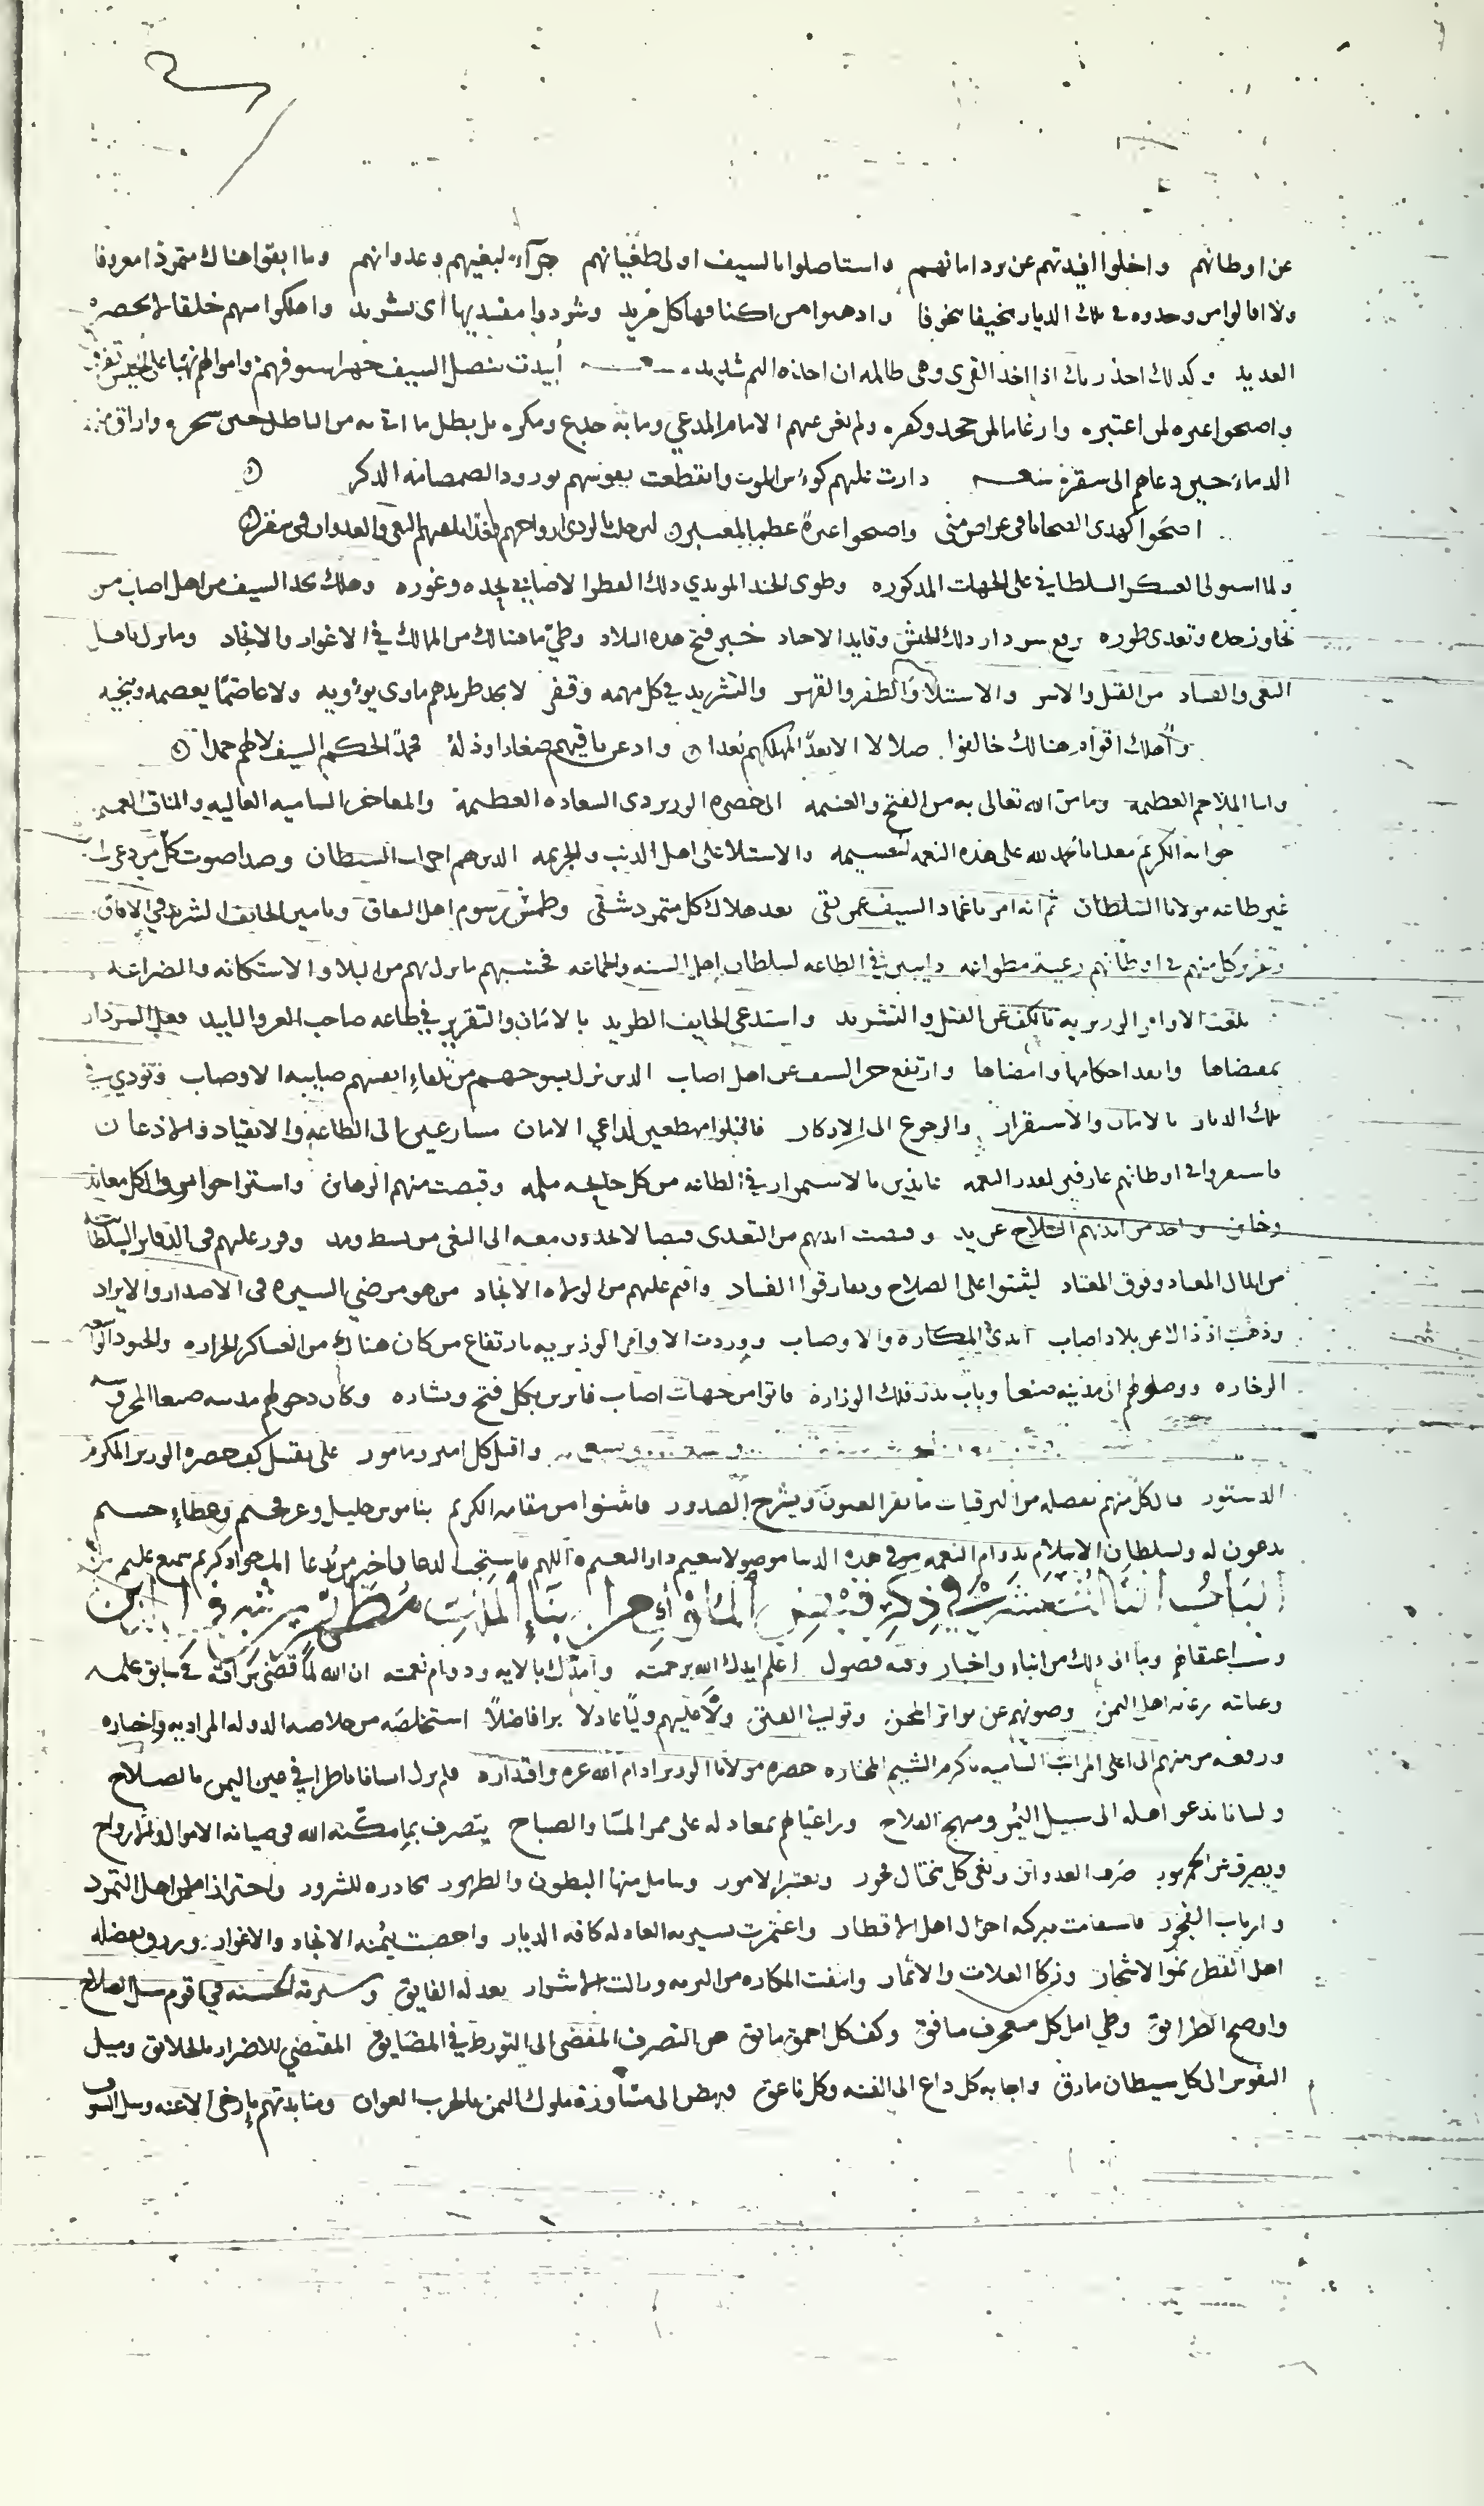 عن اوطانهم واخلوا افيدتهم عن برد امانهم واستاصلوا بالسيف اولى طغيانهم جزآء لبغيهم وعدوانهم وما ابقوا هنالك متمردا معروفا
ولا اقالوا من وحدوه في تلك الديار مخيفا مخوفا وادهبوا من اكنافها كل مريد وشردوا مفسديها اى تشريد واهلكوا منهم خلقا لا يحصره
العديد وكدلك اخذ ربك اذا اخذ القرى وهى ظالمه ان اخذه اليم شديد أبيدت بنصل السيف
واصبحوا عبره لمن اعتبره وارغاما لمن جحد وكفره ولم يغن عنهم الامام المدعي وما به خدع ومكره بل بطل ما اتى به من الباطل حين سحره واراق
الدماء حين دعاهم الى سقره دارت عليهم كوءس الموت وانقطعت نفوسهم بورود الصمصامة الدكر
اضحوا كهدى الضحايا فى عراص منى واصبحوا عبرة عظما لمعتبر لبن حلت بالردى ارواحهم فلقد البغى والعدوان فى سقر
ولما استولى العسكر السلطاني على الجهات المدكوره وطوى الجند المويدي دلك القطر الاصابي نجده وغوره وهلك بحد السيف من اهل اصاب من
تجاوز حده وتعدى طوره رفع سردار دلك الجيش وقايد الاجناد خبر فتح هده البلاد وطيّ ما هنالك من الممالك في الاغوار والانجاد وما نزل باهل
البغى والفساد من القتل والاسر والاستيلا والظفر والقهر والتشريد في كل مهمه وقفر لا يجد طريدهم ماوى يوءويه ولا عاصمًا يعصمه وينجيه
واهلك اقوام هنالك خالفوا ضلالا الا بعدًا لمهلكهم بعدا وادعن باقيهم صغارا وذلة محمدًا لحكم السيف لاطم حمدا
واما الملاحم العظيمة وما من الله تعالى به من الفتح والغنيمه الى حضره الوزير دى السعاده العظيمة والمفاخر الساميه العاليه والمناقب العميمه
جوابه الكريم معلنا بالحمد لله على هذه النعمه الجسيمه والاستيلا على اهل الذنب والجريمه الدين هم احزاب الشيطان وصدا صوت كل من دعى الى
غير طاعه مولانا السلطان ثم انه امر باغماد السيف عمن بقى بعد هلاك كل متمرد شقى وطمس رسوم اهل النفاق وتامين الخايف الشريد في الافاق
وتقرير كل منهم فى اوطانهم رعية مطواعه داخلين في الطاعه لسلطان اهل السنه والجماعه فحسبهم ما نزل بهم من البلا والاستكانه والضراعه
بلغت الاوامر الوزيريه بالكف عن القتل والتشريد واستدعى الخايف الطريد بالامان والتقرير في طاعه صاحب العز والتاييد ففعل السردار
بمقتضاها وانفد احكامها وامضاها وارتفع حر السيف عن اهل اصاب الدين نزل بسوحهم من تلقاء انفسهم صايبه الاوصاب ونودي في
تلك الديار بالامان والاستقرار والرجوع الى الاوكار فاقبلوا مهطعين لداعي الامان مسارعين الى الطاعه والانقياد والاذعان
فاستقروا فى اوطانهم عارفين لقدر النعمه عايذين بالاستمرار في الطاعه من كل حادثه ملمه وقبضت منهم الرهاين واستراحوا من كل معاند
وخاين واخد من ايديهم السلاح عن يد وقبضت ايديهم من التعدى قبضا لا يجدون معه الى البغى من بسط ومد وقرر عليهم فى الدفاتر السلطانيه
من المال المعتاد وفوق المعتاد ليثبتوا على الصلاح ويفارقوا الفساد واقيم عليهم من الولاه الانجاد من هو مرضي السيره فى الاصدار والايراد
وذهبت اذ ذاك عن بلاد اصاب ايدى المكاره والاوصاب ووردت الاوامر الوزيريه بارتفاع من كان هنالك من العساكر الجراره والجنود
الزخاره ووصلوهم الى مدينه صنعا وباب بدر فلك الوزاره فاتوا من جهات اصاب فايزين بكل فتح وبشاره وكان دخولهم مدينه صنعا المحروسه
واقبل كل امير ومامور على تقبيل كف حضره الوزير المكرم
الدستور فنال كل منهم بفضله من الترقيات ما تقر العيون ويشرح الصدور فانثنوا من مقامه الكريم بناموس جليل وعز فخيم وعطاء جسيم
يدعون له ولسلطان الاسلام بدوام النعمه فى هده الدنيا موصولا بنعيم دار النعيم اللهم فاستجب الدعا يا خير من يُدعا انك جواد كريم سميع عليم
الباب الثالث عشر في ذكر المدينة
وما اتى دلك من انباء واخبار وفيه فصول اعلم ايدك الله برحمته وامدّك بالايه ودوام نعمته ان الله لما قضى برافته في سابق علمه
وعنايته رعايه اهل اليمن وصونهم عن تواتر المحن وتوثب الفتن ولّا عليهم وليًا عادلا برا فاضلا استخلصه من خلاصه الدوله المراديه واختاره
ورفعه من منهم الى اعلى المراتب الساميه باكرم الشيم المختاره حضره مولانا الوزير ادام الله عزه واقتداره فلم يزل انسانا ناظرا في عين اليمن بالصلاح
ولسانا يدعو اهله الى سبيل اليُمن ومنهج الفلاح وراعيا لهم بمعادله على ممر المسا والصباح يتصرف بما مكّنه الله فى صيانه الاموال والارواح
ويصرف عن الجمهور صرف العدوان وبغى كل مختال فخور ويعتبر الامور ويتامل منها البطون والظهور محادره للشرور واحترازا من اهل التمرد
وارباب الفجور فاستقامت ببركه احوال اهل الاقطار واغتمرت بسيرته العادله كافه الديار واخصبت بيُمنه الانجاد والاغوار ورزق بفضله
اهل القطر نمو الاشجار وزكا الغلات والاثمار وانتفت المكاره من البريه وزالت الاشرار بعدله الفايق وسيرته الحسنه في اقوم سبل الصلاح
واوضح الطرايق وطي امل كل منحرف منافق وكف كل احمق مايق عن التصرف المفضى الى التورط في المضايق المقتضي للاضرار بالخلايق وميل
النفوس الى كل شيطان مارق واجابه كل داع الى الفتنه وكل ناعق فنهض الى مناوزة ملوك اليمن بالحرب العوان ومنابدتهم بارخى الاعنه وسل السيوف